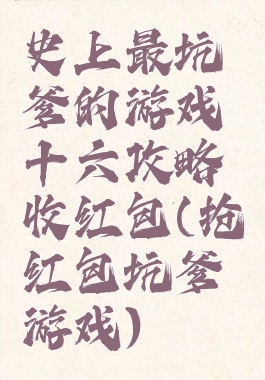 史上最坑
爹的游戏
十六攻略
收红包(抢
红包坑爹
游戏)